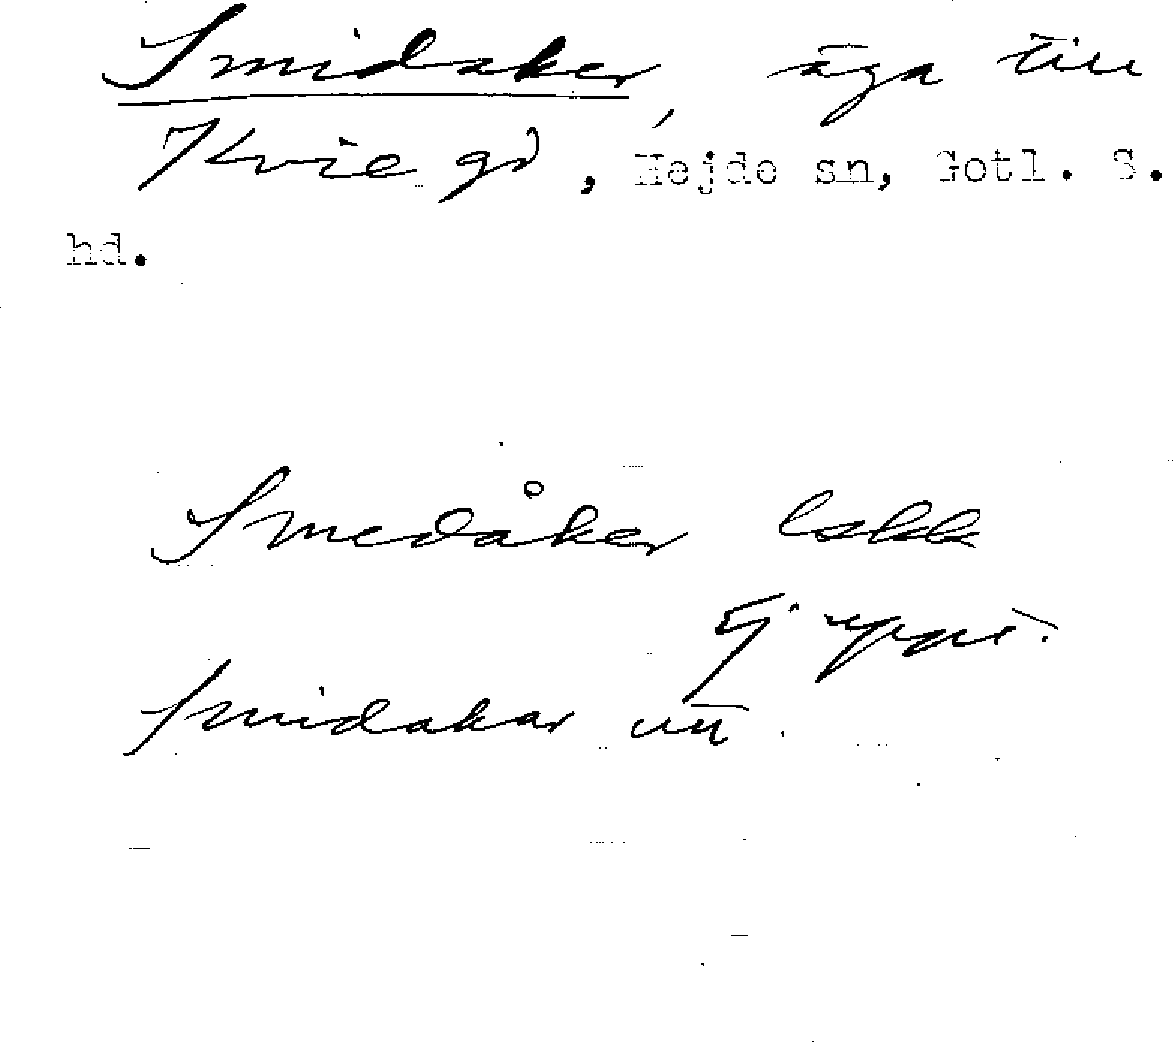 Smidaker, äga till
Kvie gd, Hejde sn, Gotl. S.
hd.
Smedåker
Ej uppt.
Smidakar utt.